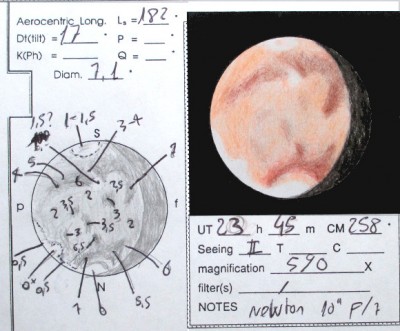 Aerocentric Long. Ls = 182 °
Dt(tilt) = 17 ° P = °
K(Ph) = Q = °
Diam. 7,1 "
1,5? 1 1,5 S 3-4
5 6 2,5
4 2 2
p 3,5 3 f
2 3,5 2
3
0,5 6,5 6
0,5 N 5,5
7 6
UT 23 h 45 m CM 258 °
Seeing II T C
magnification 590 X
filter(s) /
NOTES Newton 10" F/7